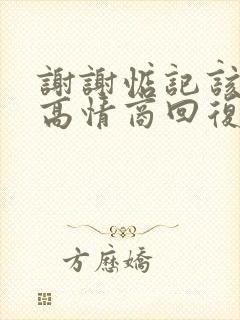 謝謝惦記該
高情商回復
方應嬌